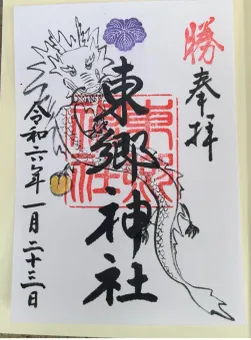 勝
奉拝
東郷神社
東郷神社
令和六年一月二十三日